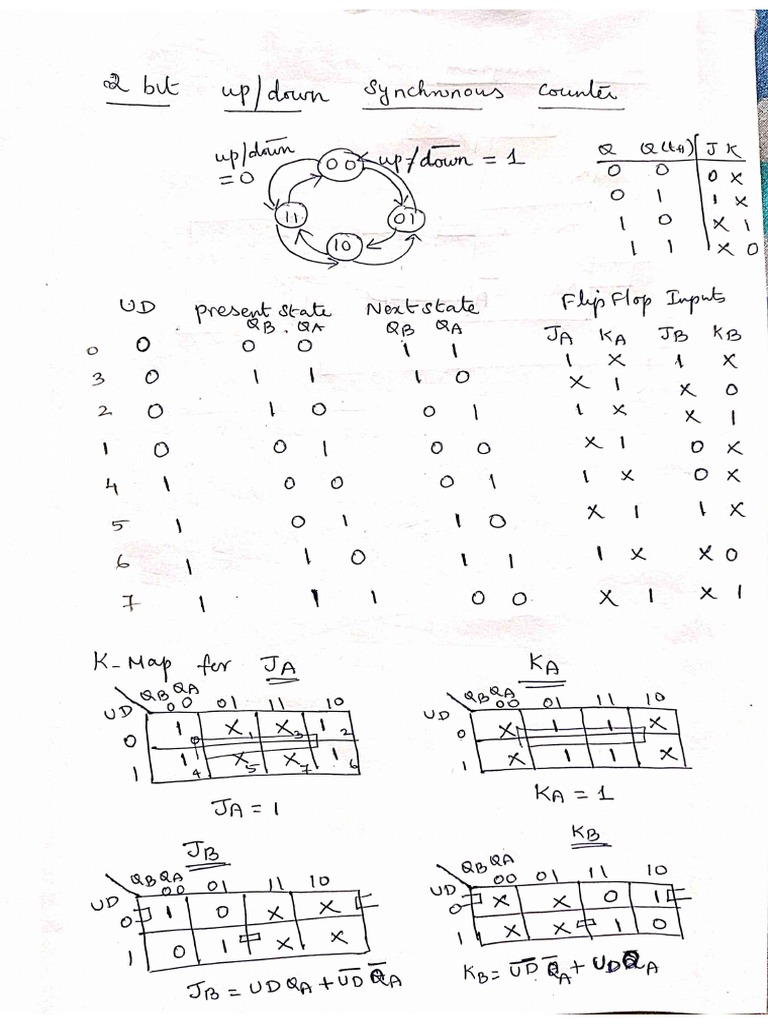 2 bit up/down Synchronous Counter
up/d̅o̅w̅n̅ = 0
00
up/d̅o̅w̅n̅ = 1
11
01
10
Q Q(t+1) J K
0 0 0 X
0 1 1 X
1 0 X 1
1 1 X 0
UD Present State Next State Flip Flop Inputs
QB . QA QB QA JA KA JB KB
0 0 0 0 1 1 1 X 1 X
3 0 1 1 1 0 X 1 X 0
2 0 1 0 0 1 1 X X 1
1 0 0 1 0 0 X 1 0 X
4 1 0 0 0 1 1 X 0 X
5 1 0 1 1 0 X 1 1 X
6 1 1 0 1 1 1 X X 0
7 1 1 1 0 0 X 1 X 1
K-Map for JA
QB QA
UD 00 01 11 10
0 1 0 X 1 X 3 1 2
1 1 4 X 5 X 7 1 6
JA = 1
KA
QB QA
UD 00 01 11 10
0 X 1 1 X
1 X 1 1 X
KA = 1
JB
QB QA
UD 00 01 11 10
0 1 0 X X
1 0 1 X X
JB = UD QA + U̅D̅ Q̅A
KB
QB QA
UD 00 01 11 10
0 X X 0 1
1 X X 1 0
KB = U̅D̅ Q̅A + UD QA